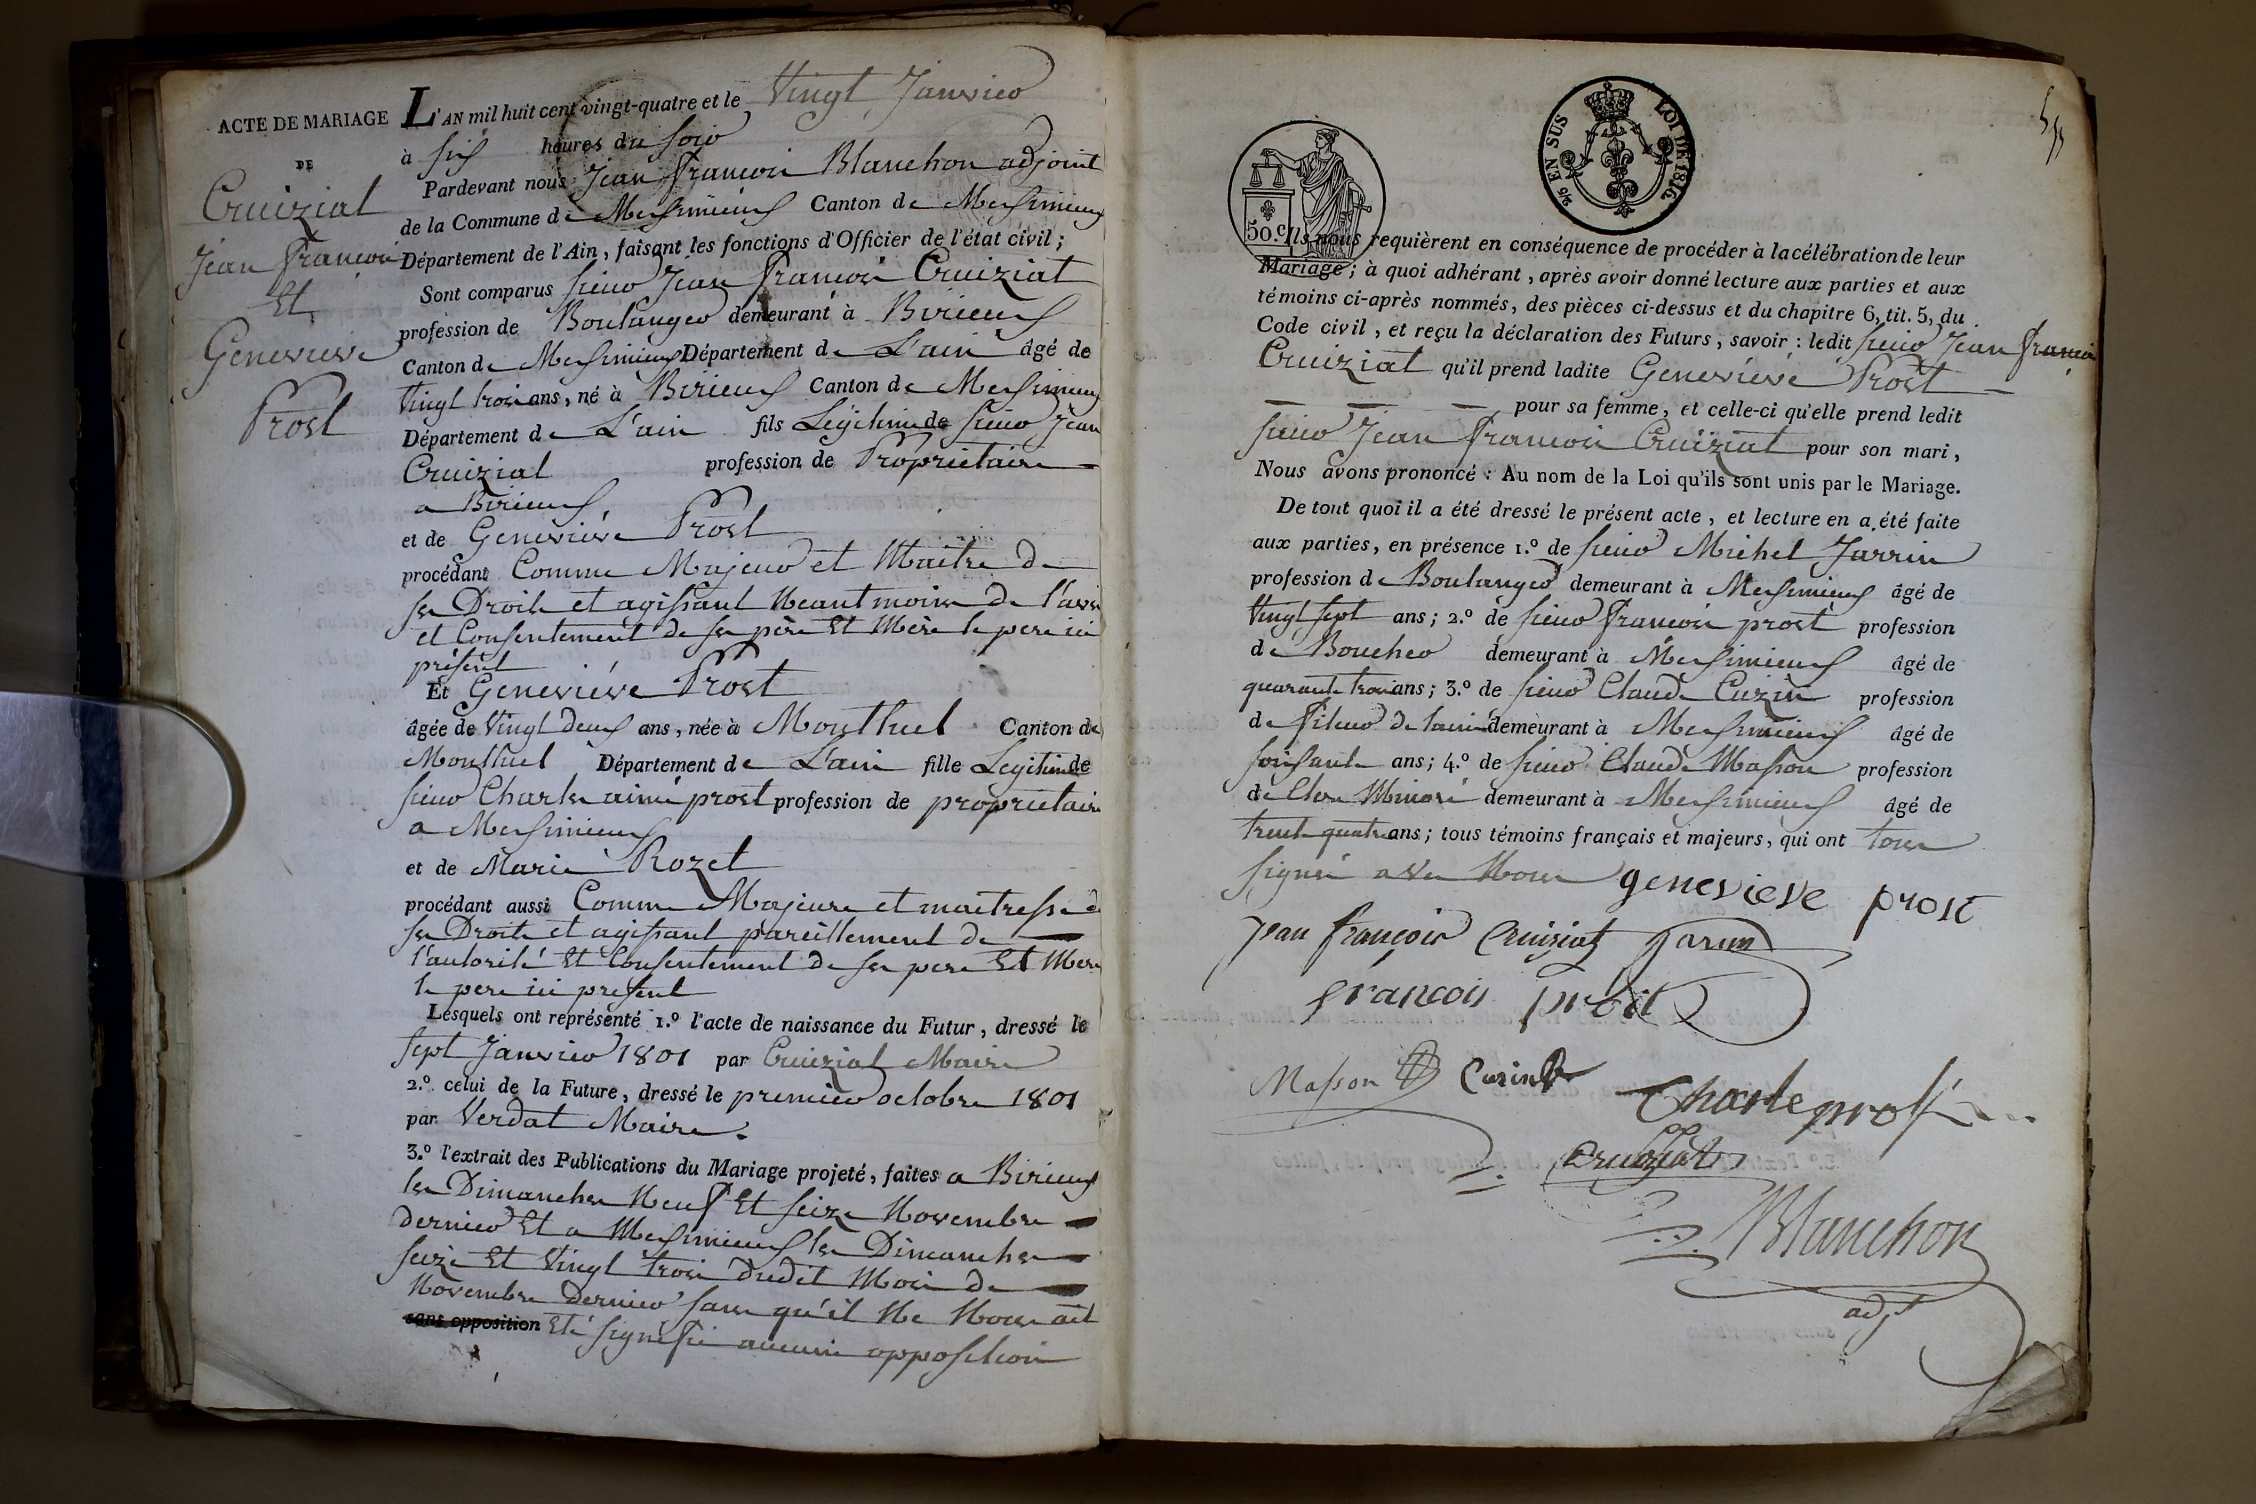 ACTE DE MARIAGE
DE
Cruiziat
Jean François
Et
Genevieve
Prost
L'AN mil huit cent vingt-quatre et le Vingt Janvier
à six heures du soir
Pardevant nous Jean François Blanchon adjoint
de la Commune de Meximieux Canton de Meximieux
Département de l'Ain, faisant les fonctions d'Officier de l'état civil;
Sont comparus sieur Jean François Cruiziat
profession de Boulanger demeurant à Birieux
Canton de Meximieux Département de L'ain âgé de
Vingt trois ans, né à Birieux Canton de Meximieux
Département de L'ain fils Légitime de sieur Jean
Cruiziat profession de Propriétaire
a Birieux
et de Geneviéve Prost
procédant Comme Majeur et Maitre de
ses Droits et agissant Neantmoins de l'avis
et Consentement de ses père Et Mère le pere ici
présent
Et Geneviéve Prost
âgée de Vingt deux ans, née à Montluel Canton de
Montluel Département de L'ain fille Legitime de
sieur Charles aimé prost profession de propriétaire
a Meximieux
et de Marie Rozet
procédant aussi Comme Majeure et maitresse de
ses Droits et agissant pareillement de
l'autorité Et Consentement de ses pere Et Mere
le pere ici present
Lesquels ont représenté 1.º l'acte de naissance du Futur, dressé le
sept Janvier 1801 par Cruiziat Maire
2.º celui de la Future, dressé le premier octobre 1801
par Verdat Maire.
3.º l'extrait des Publications du Mariage projeté, faites a Birieux
les Dimanches Neuf Et seize Novembre
dernier Et a Meximieux les Dimanches
seize Et Vingt trois dudit Mois de
Novembre dernier sans qu'il Ne Nous ait
sans opposition Eté signifié aucune opposition
50.c
% EN SUS LOI DE 1816.
Ils nous requièrent en conséquence de procéder à la célébration de leur
Mariage; à quoi adhérant, après avoir donné lecture aux parties et aux
témoins ci-après nommés, des pièces ci-dessus et du chapitre 6, tit. 5, du
Code civil, et reçu la déclaration des Futurs, savoir: ledit sieur Jean François
Cruiziat qu'il prend ladite Geneviéve Prost
pour sa femme, et celle-ci qu'elle prend ledit
sieur Jean François Cruiziat pour son mari,
Nous avons prononcé: Au nom de la Loi qu'ils sont unis par le Mariage.
De tout quoi il a été dressé le présent acte, et lecture en a été faite
aux parties, en présence 1.º de sieur Michel Jarrin
profession de Boulanger demeurant à Meximieux âgé de
Vingt sept ans; 2.º de sieur François prost profession
de Boucher demeurant à Meximieux âgé de
quarante trois ans; 3.º de sieur Claude Cuzin profession
de fileur de laine demeurant à Meximieux âgé de
soixante ans; 4.º de sieur Claude Masson profession
de Clerc Minoré demeurant à Meximieux âgé de
trente quatre ans; tous témoins français et majeurs, qui ont tous
signé avec Nous genevieve prost
Jean françois Cruiziat Jarin
françois prost
Masson Cusin
Charle prost
Cruiziat
Blanchon
adjt